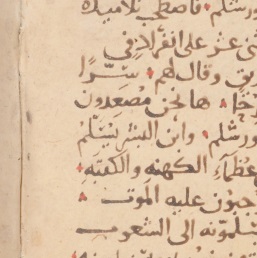 ورشلم فاصطحب تلاميذه
ثنى عشر على انفرالا في
يق وقال لهم سرًا
ها نحن مصعدون
ورشلم وابن البشر يسلم
عظماء الكهنه والكتبه
جبون عليه الموت
سلمونه الى الشعوب